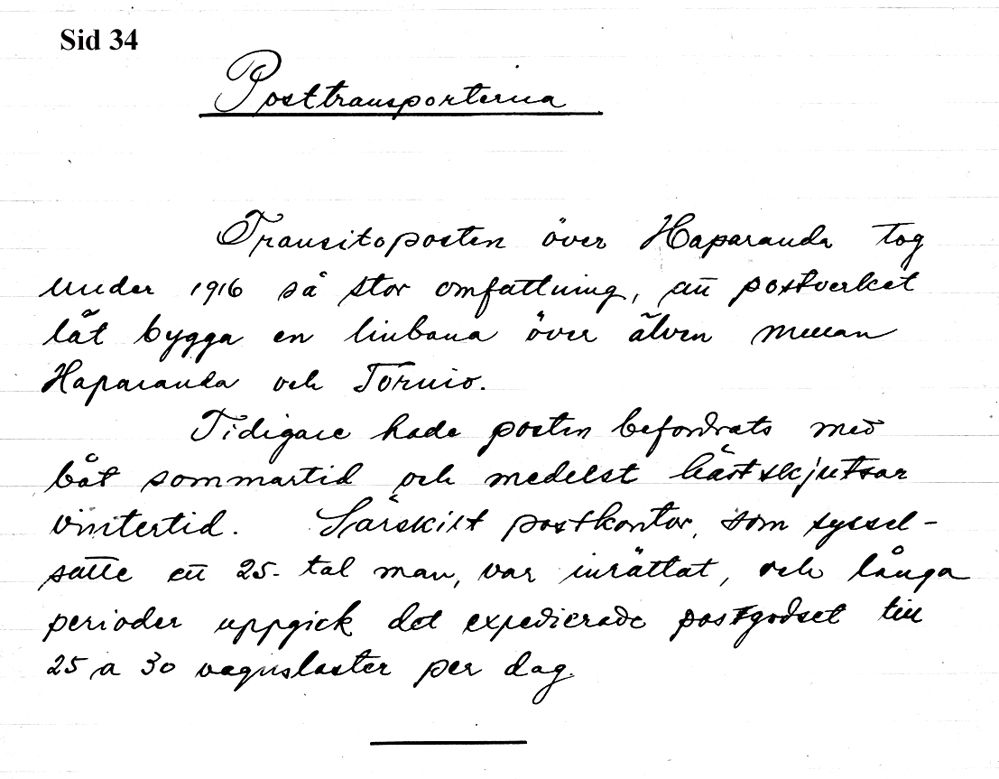 Sid 34
Posttransporterna
Transitoposten över Haparanda tog
under 1916 så stor omfattning, att postverket
låt bygga en linbana över älven mellan
Haparanda och Tornio.
Tidigare hade posten befordrats med
båt sommartid och medelst hästskjutsar
vintertid. Särskilt postkontor, som syssel-
satte ett 25-tal man, var inrättat, och långa
perioder uppgick det expedierade postgodset till
25 a 30 vagnslaster per dag.